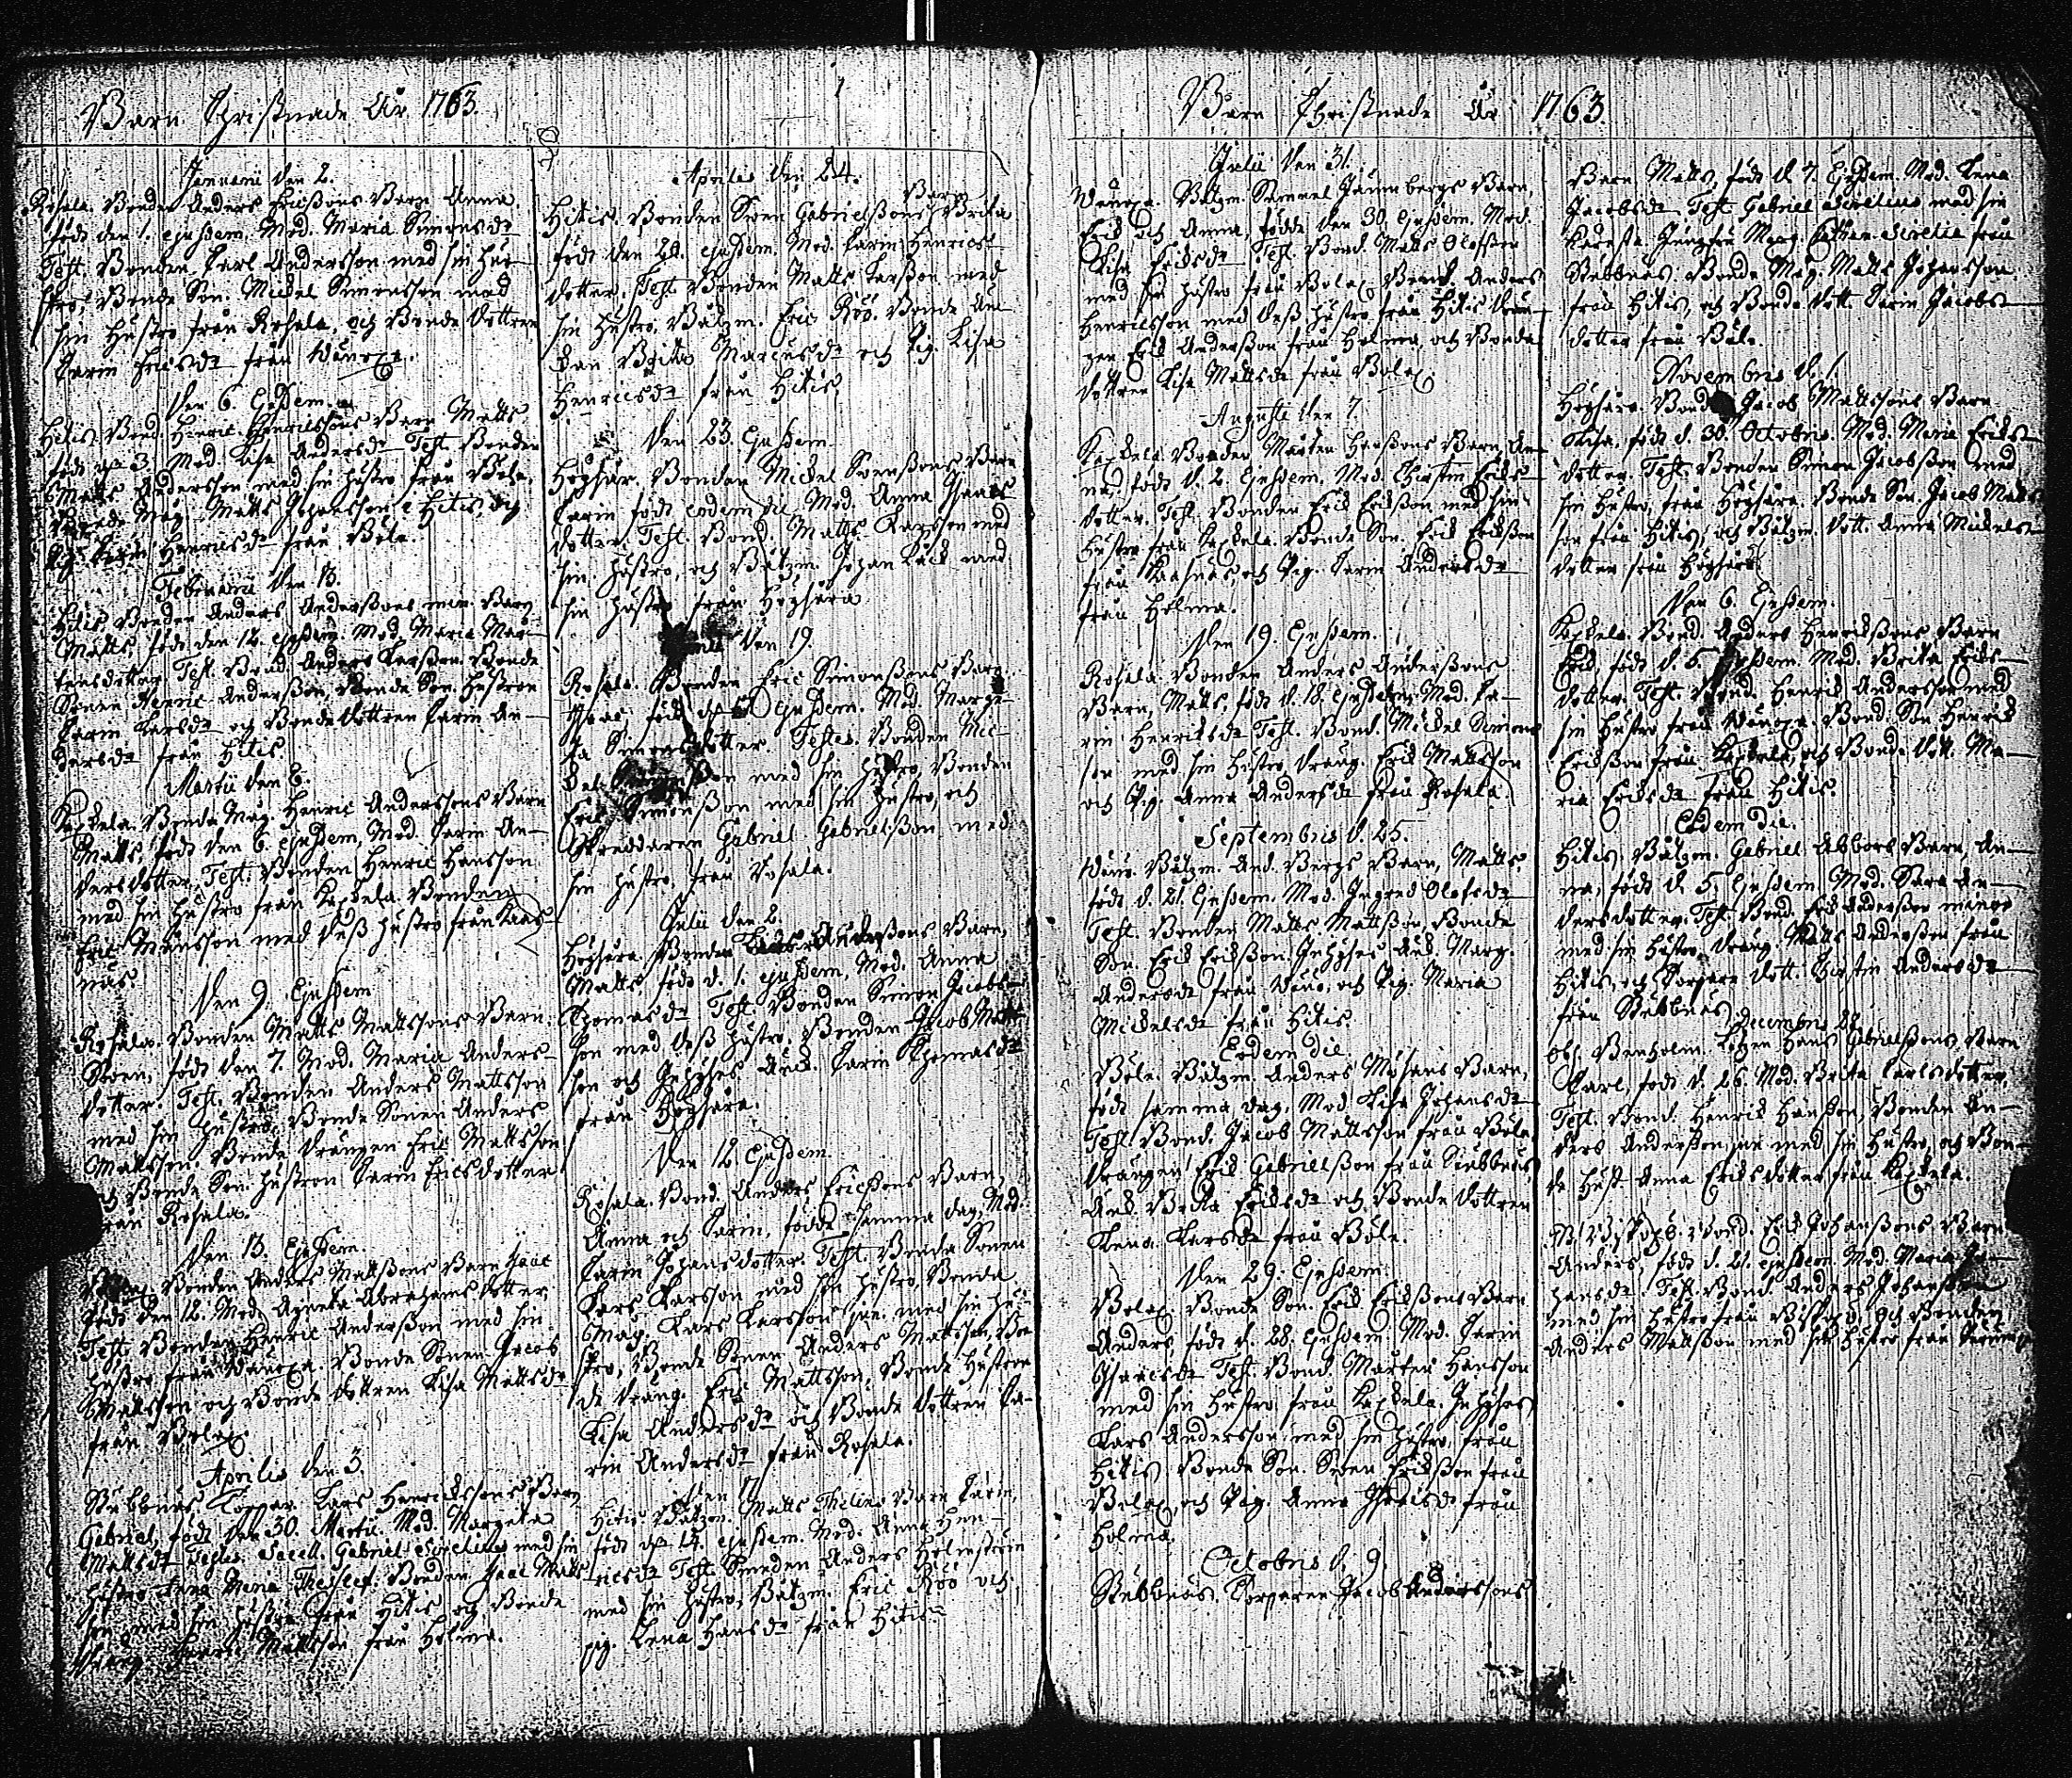 Barn Christnade År 1763.
Januarii den 2.
Rosala. Bonden Anders Ericssons Barn Anna
född den 1. ejusdem. Mod. Maria Simonsdr
Test. Bonden Carl Andersson med sin hu-
stro, Bonde Son. Michel Simonsson med
sin hustro från Rosala, och Bonde dottren
Carin Ericsdr från Wänoxa.
Den 6. Ejusdem.
Hitis. Bond. Henric Henricssons Barn Matts
född den 3. Mod. Lisa Andersdr Test. Bonden
Matts Andersson med sin hustro från Böle,
Bonde Mag. Matts Johansson i Hitis, och
Pig. Carin Henricsdr från Böle.
Februarii den 13.
Hitis Bonden Anders Anderssons min. Barn
Matts, född den 12. ejusdem. Mod. Maria Mår-
tensdotter. Test. Bond. Anders Larsson. Bonde
Sonen Henric Andersson, Bonde Son. hustron
Carin Larsdr och Bonde dottren Carin An-
dersdr från Hitis.
Martii den 8.
Kaxkela. Bonde Mag. Henric Anderssons Barn
Matts, född den 6. ejusdem, Mod. Carin An-
dersdotter, Test. Bonden Henric Hansson
med sin hustro från Kaxkela. Bonden
Eric Månsson med dess hustro från Kaas-
näs.
Den 9. Ejusdem
Rosala. Bonden Matts Mattssons Barn
Swen, född den 7. Mod. Maria Anders-
dotter. Test. Bonden Anders Mattsson
med sin hustro, Bonde Sonen Anders
Mattsson. Bonde Drängen Eric Mattsson
och Bonde Son. hustron Carin Ericsdotter
från Rosala.
Den 13. Ejusdem.
Bonden Anders Mattssons Barn Isaac
född den 12. Mod. Agneta Abrahams dotter
Test. Bonden Henric Andersson med sin
hustro från Wänoxa. Bonde Sonen Jacob
Mattsson och Bonde dottren Lisa Mattsdr
från Bolax.
Aprilis den 3.
Stubbnäs Torpar. Lars Henrickssons Barn
Gabriel, född den 30. Martii. Mod. Margeta
Mattsdr Testes. Sacell. Gabriel Sirelius med sin
hustro Bonden Isaac Matts-
son med sin hustro från Hitis och Bonde
Dräng. Henric Mattsson från Holma.
Aprilis den 24.
Hitis. Bonden Swen Gabrielssons Barn Brita
född den 20. ejusdem. Mod. Carin Henrics-
dotter. Test. Bonden Matts Larsson med
sin hustro, Båtzm. Eric Röö. Bonde En-
kan Brita Marcusdr och Pig. Lisa
Henricsdr från Hitis.
Den 23. Ejusdem.
Högsar. Bonden Michel Swenssons Barn
Carin född eodem die, Mod. Anna Isaacs
dotter. Test. Bond. Matts Larsson med
sin hustro, och Båtzm. Johan Käck med
sin hustro från Högsara
den 19.
Rosala. Bonden Eric Simonssons Barn
Isaac, född ejusdem. Mod. Marge-
ta Simonsdotter Testes. Bonden Mic-
med sin hustro, Bonden
Eric Simonsson med sin hustro, och
Skreddaren Gabriel Gabrielsson med
sin hustro från Rosala.
Julii den 2.
Högsara. Bonden Anderssons Barn,
Matts, född d. 1. ejusdem, Mod. Anna
Thomasdr Test. Bonden Simon Jacobs-
son med dess hustro, Bonden Jacob Matts-
son och Inhyses Enk. Carin Thomasdr
från Högsara.
Den 12. Ejusdem.
Rosala. Bond. Anders Ericssons Barn,
Anna och Carin, födde samma dag, Mod.
Carin Johansdotter. Test. Bonde Sonen
Lars Larsson med sin hustro, Bonde
Mag. Lars Larsson sen. med sin hu-
stro, Bonde Sonen Anders Mattsson, Bon-
de Dräng. Eric Mattsson, Bonde hustron
Lisa Andersdr och Bonde dottren Ca-
rin Andersdr från Rosala.
Den 17
Hitis. Båtzm. Matts Thelins Barn Carin,
född den 14. ejusdem. Mod. Anna Hen-
ricsdr Test. Smeden Anders Holmström
med sin hustro, Båtzm. Eric Röö och
pig. Lena Hansdr från Hitis.
Barn Christnade År 1763
Julii den 31.
Wänoxa. Båtzm. Samuel Jäunbergs Barn,
Erik och Anna, födde den 30. ejusdem, Mod.
Lisa Eriksdr Test. Bond. Matts Olofsson
med sin hustro från Bolax, Bond. Anders
Henricsson med dess hustro från Hitis Drän-
gen Erik Andersson från Holma, och Bonde
dottren Lisa Mattsdr från Bolax.
Augusti den 7.
Kaxkela. Bonden Mårten Hanssons Barn An-
na, född d. 2. Ejusdem, Mod. Christin Eriks-
dotter. Test. Bonden Erik Eriksson med sin
hustro från Kaxkela. Bonde Son. Erik Eriksson
från Kaasnäs och Pig. Carin Andersdr
från Holma.
Den 19. Ejusdem.
Rosala Bonden Anders Anderssons
Barn, Matts, född d. 18. ejusdem, Mod. Ca-
rin Henriksdr Test. Bond. Michel Simons-
son med sin hustro, Dräng. Erik Mattsson
och Pig. Anna Andersdr från Rosala.
Septembris d. 25.
Wäno. Båtzm. And. Bergs Barn, Matts,
född d. 21. Ejusdem. Mod. Ingred Olofsdr
Test. Bonden Matts Mattsson, Bonde
Son. Erik Eriksson. Inhyses Enk. Marg.
Andersdr från Wäno, och Pig. Maria
Michelsdr från Hitis.
Eodem die
Böle. Båtzm. Anders Mösans Barn,
född samma dag, Mod. Lisa Johansdr
Test. Bond. Jacob Mattsson från Böle
Drängen Erik Gabrielsson från Stubbnäs,
Enk. Brita Eriksdr och Bonde dottren
Lena Larsdr från Böle.
Den 29. Ejusdem
Bolax. Bonde Son. Erik Erikssons Barn
Anders, född d. 28. ejusdem Mod. Carin
Isaacsdr Test. Bond. Mårten Hansson
med sin hustro, från Kaxkela. Inhyses
Lars Andersson med sin hustro, från
Hitis Bonde Son. Swen Eriksson från
Bolax, och Pig. Anna från
Holma.
Octobris d. 9.
Stubbnäs. Torparen Jacob Anderssons
Barn Matts, född d. 7. Ejusdem. Mod. Lena
Jacobsdr Test. Gabriel Sirelius med sin
Käresta Jungfru Marg. Sirelia från
Stubbnäs Bonde Mag. Matts Johansson
från Hitis, och Bonde dott. Carin Jacobs-
dotter från Böle.
Novembris d. 1.
Högsåra. Bond. Jacob Mattssons Barn
Lisa, född d. 30. Octobris. Mod. Maria Eriks-
dotter. Test. Bonden Simon Jacobsson med
sin hustro, från Högsåra. Bonde Son. Jacob Matts-
son från Hitis, och Båtzm. dott. Anna Michels-
dotter från Högsåra
Den 6. Ejusdem.
Kaxkela. Bond. Anders Henrikssons Barn
Erik, född d. 5. Ejusdem. Mod. Brita Eriks-
dotter. Test. Bond. Henrik Andersson med
sin hustro från Wänoxa. Bond. Son Henrik
Eriksson från Kaxkela, och Bonde dott. Ma-
ria Eriksdr från Hitis.
Eodem die.
Hitis. Båtzm. Gabriel Abbors Barn, An-
na, född d. 5. Ejusdem. Mod. Sara An-
dersdotter. Test. Bond. Erik Andersson minor
med sin hustro, Dräng. Matts Andersson från
Hitis, och Torpare dott. Christin Andersdr
från Stubbnäs.
Decembris 28
Obs. Benholm. Hans Gabrielssons Barn
Carl, född d. 26. Mod. Brita Carlsdotter,
Test. Bond. Henrik Hansson, Bonden An-
ders Andersson jun med sin hustro, och Bon-
de Hust. Anna Eriksdotter från Kaxkela.
Bond. Erik Johanssons Barn
Anders, född d. 21. ejusdem Mod. Maria Jo-
hansdr. Test. Bond. Anders Johansson
med sin hustro från och Bonden
Anders Mattsson med sin hustro från